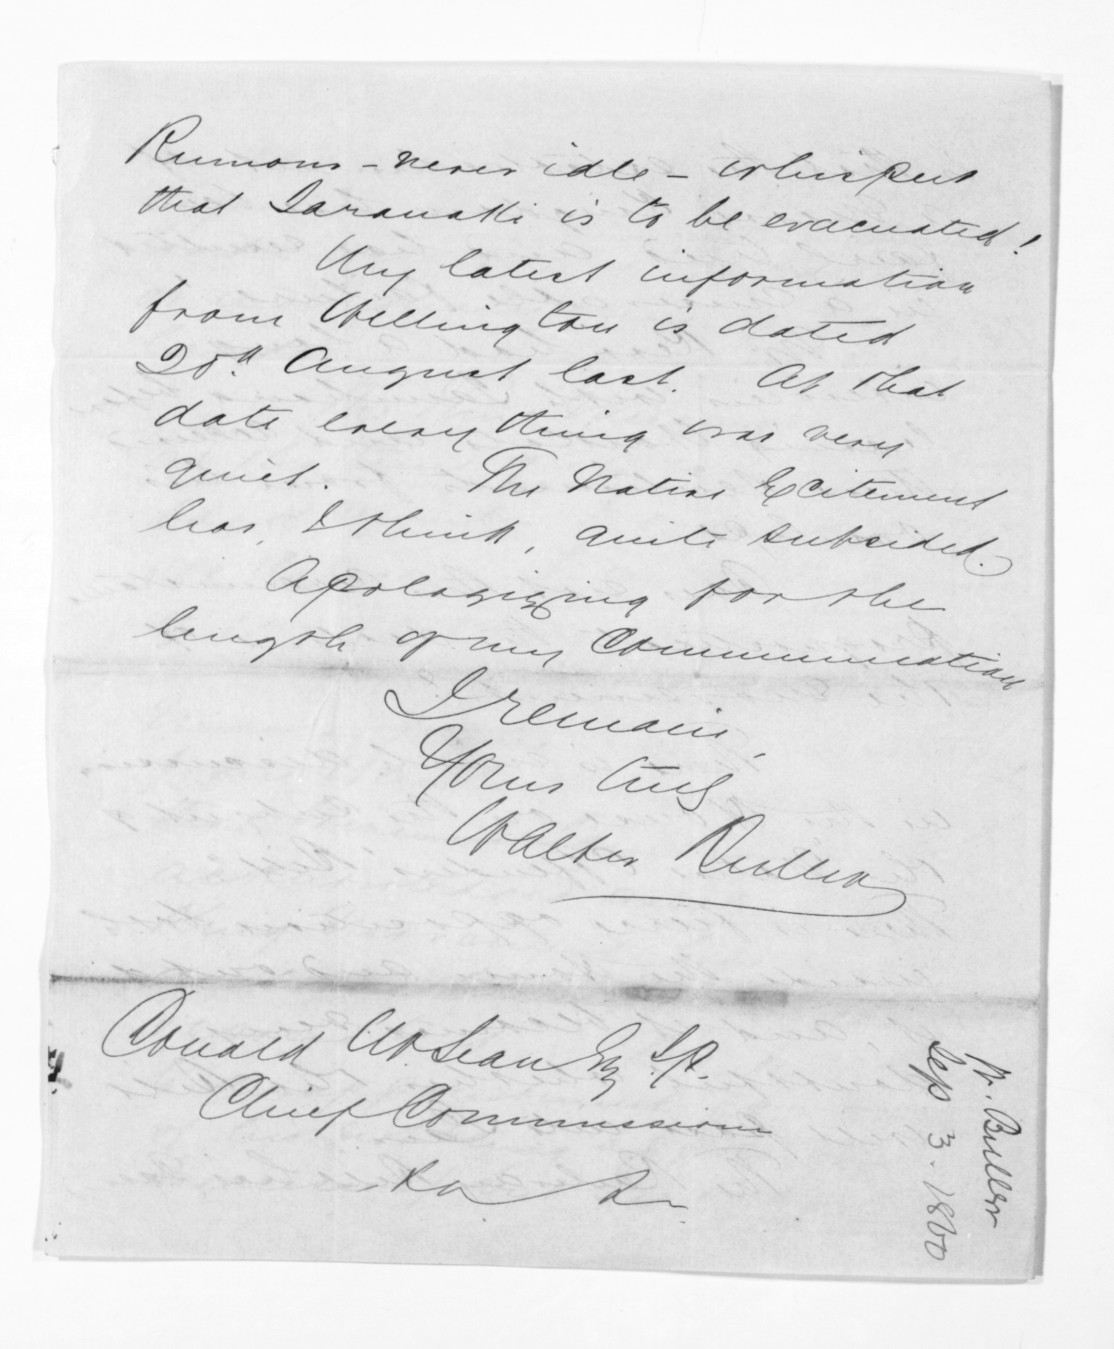 Rumour – never idle – whispers
that Taranaki is to be evacuated!
My latest information
from Wellington is dated
August last. At that
date every thing was very
quiet. The Native Excitement
has, I think, quite subsided.
Apologizing for the
length of my Communication
I remain,
Yours truly
Walter Buller
Donald McLean Esq J.P.
Chief Commissioner
W. Buller
Sep 3. 1860